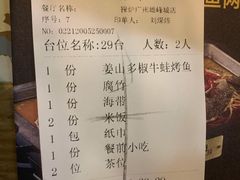 餐厅名称: 探炉广州雄峰城店
序号: 7 印单人: 刘煤炜
NO: 02212005250007
台位名称:29台 人数: 2人
1 份 姜山多椒牛蛙烤鱼
1 份 腐竹
1 份 海带
2 份 米饭
1 包 纸巾
1 份 餐前小吃
2 位 茶位